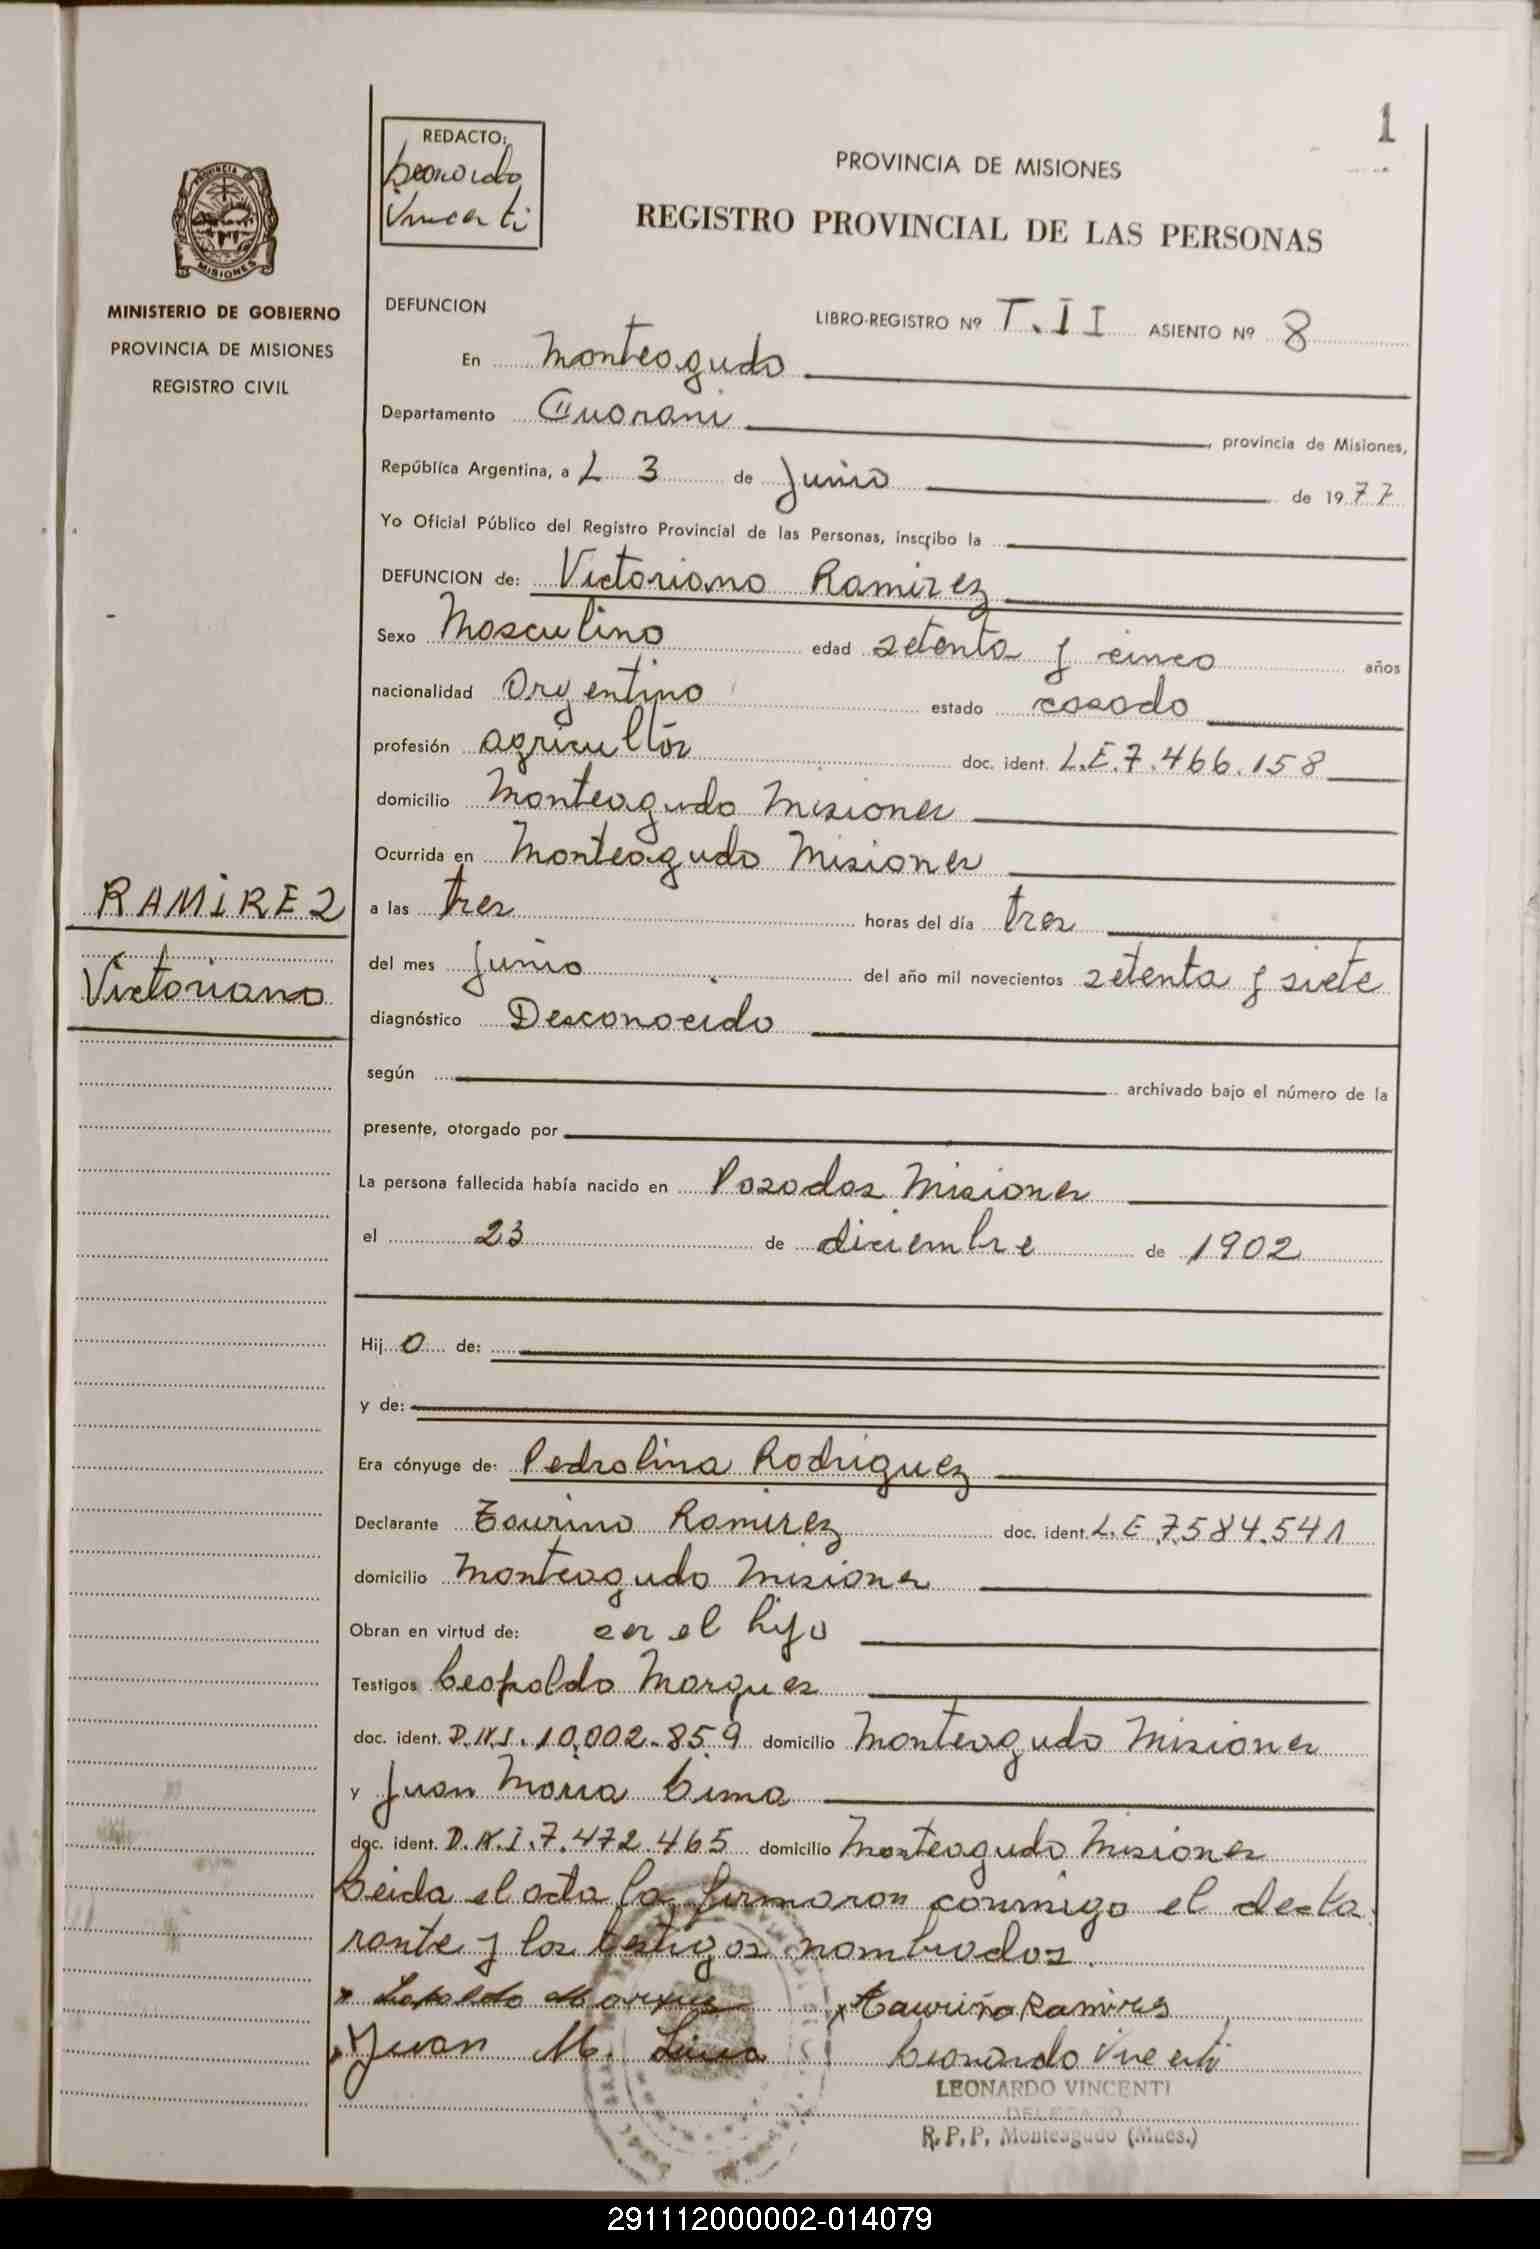 1
REDACTO:
Leonardo
Vincenti
PROVINCIA DE MISIONES
REGISTRO PROVINCIAL DE LAS PERSONAS
PROVINCIA DE
MISIONES
MINISTERIO DE GOBIERNO
PROVINCIA DE MISIONES
REGISTRO CIVIL
DEFUNCION
LIBRO-REGISTRO Nº T.II ASIENTO Nº 8
En Monteagudo
Departamento Guarani, provincia de Misiones,
República Argentina, a L 3 de Junio de 1977
Yo Oficial Público del Registro Provincial de las Personas, inscribo la
DEFUNCION de: Victoriano Ramirez
Sexo Masculino edad setenta y cinco años
nacionalidad Argentino estado casado
profesión agricultor doc. ident. L.E.7.466.158
domicilio Monteagudo Misiones
Ocurrida en Monteagudo Misiones
RAMIREZ
Victoriano
a las tres horas del día tres
del mes Junio del año mil novecientos setenta y siete
diagnóstico Desconocido
según archivado bajo el número de la
presente, otorgado por
La persona fallecida había nacido en Posadas Misiones
el 23 de diciembre de 1902
Hijo de:
y de:
Era cónyuge de: Pedrolina Rodriguez
Declarante Taurino Ramirez doc. ident. L.E 7.584.541
domicilio Monteagudo Misiones
Obran en virtud de: ser el hijo
Testigos Leopoldo Marques
doc. ident. D.N.I. 10.002.859 domicilio Monteagudo Misiones
y Juan Maria Lima
doc. ident. D.N.I.7.472.465 domicilio Monteagudo Misiones
Leida el acta la firmaron conmigo el decla
rante y los testigos nombrados.
x Lepoldo Marques x Tauriño Ramires
x Juan M. Lima Leonardo Vincenti
LEONARDO VINCENTI
DELEGADO
R.P.P. Monteagudo (Mnes.)
291112000002-014079